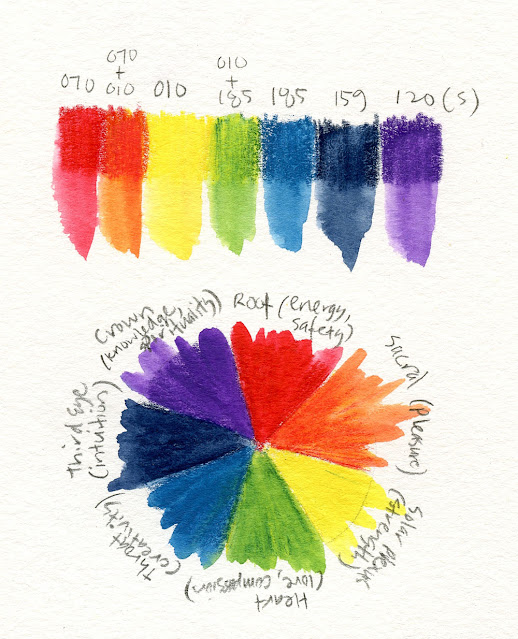 070
070
+
010
010
010
+
185
185
159
120 (S)
Root (energy,
safety)
Sacral (pleasure)
Solar Plexus
(strength)
Heart
(love, compassion)
Throat
(creativity)
Third Eye
(intuition)
Crown
(knowledge,
spirituality)